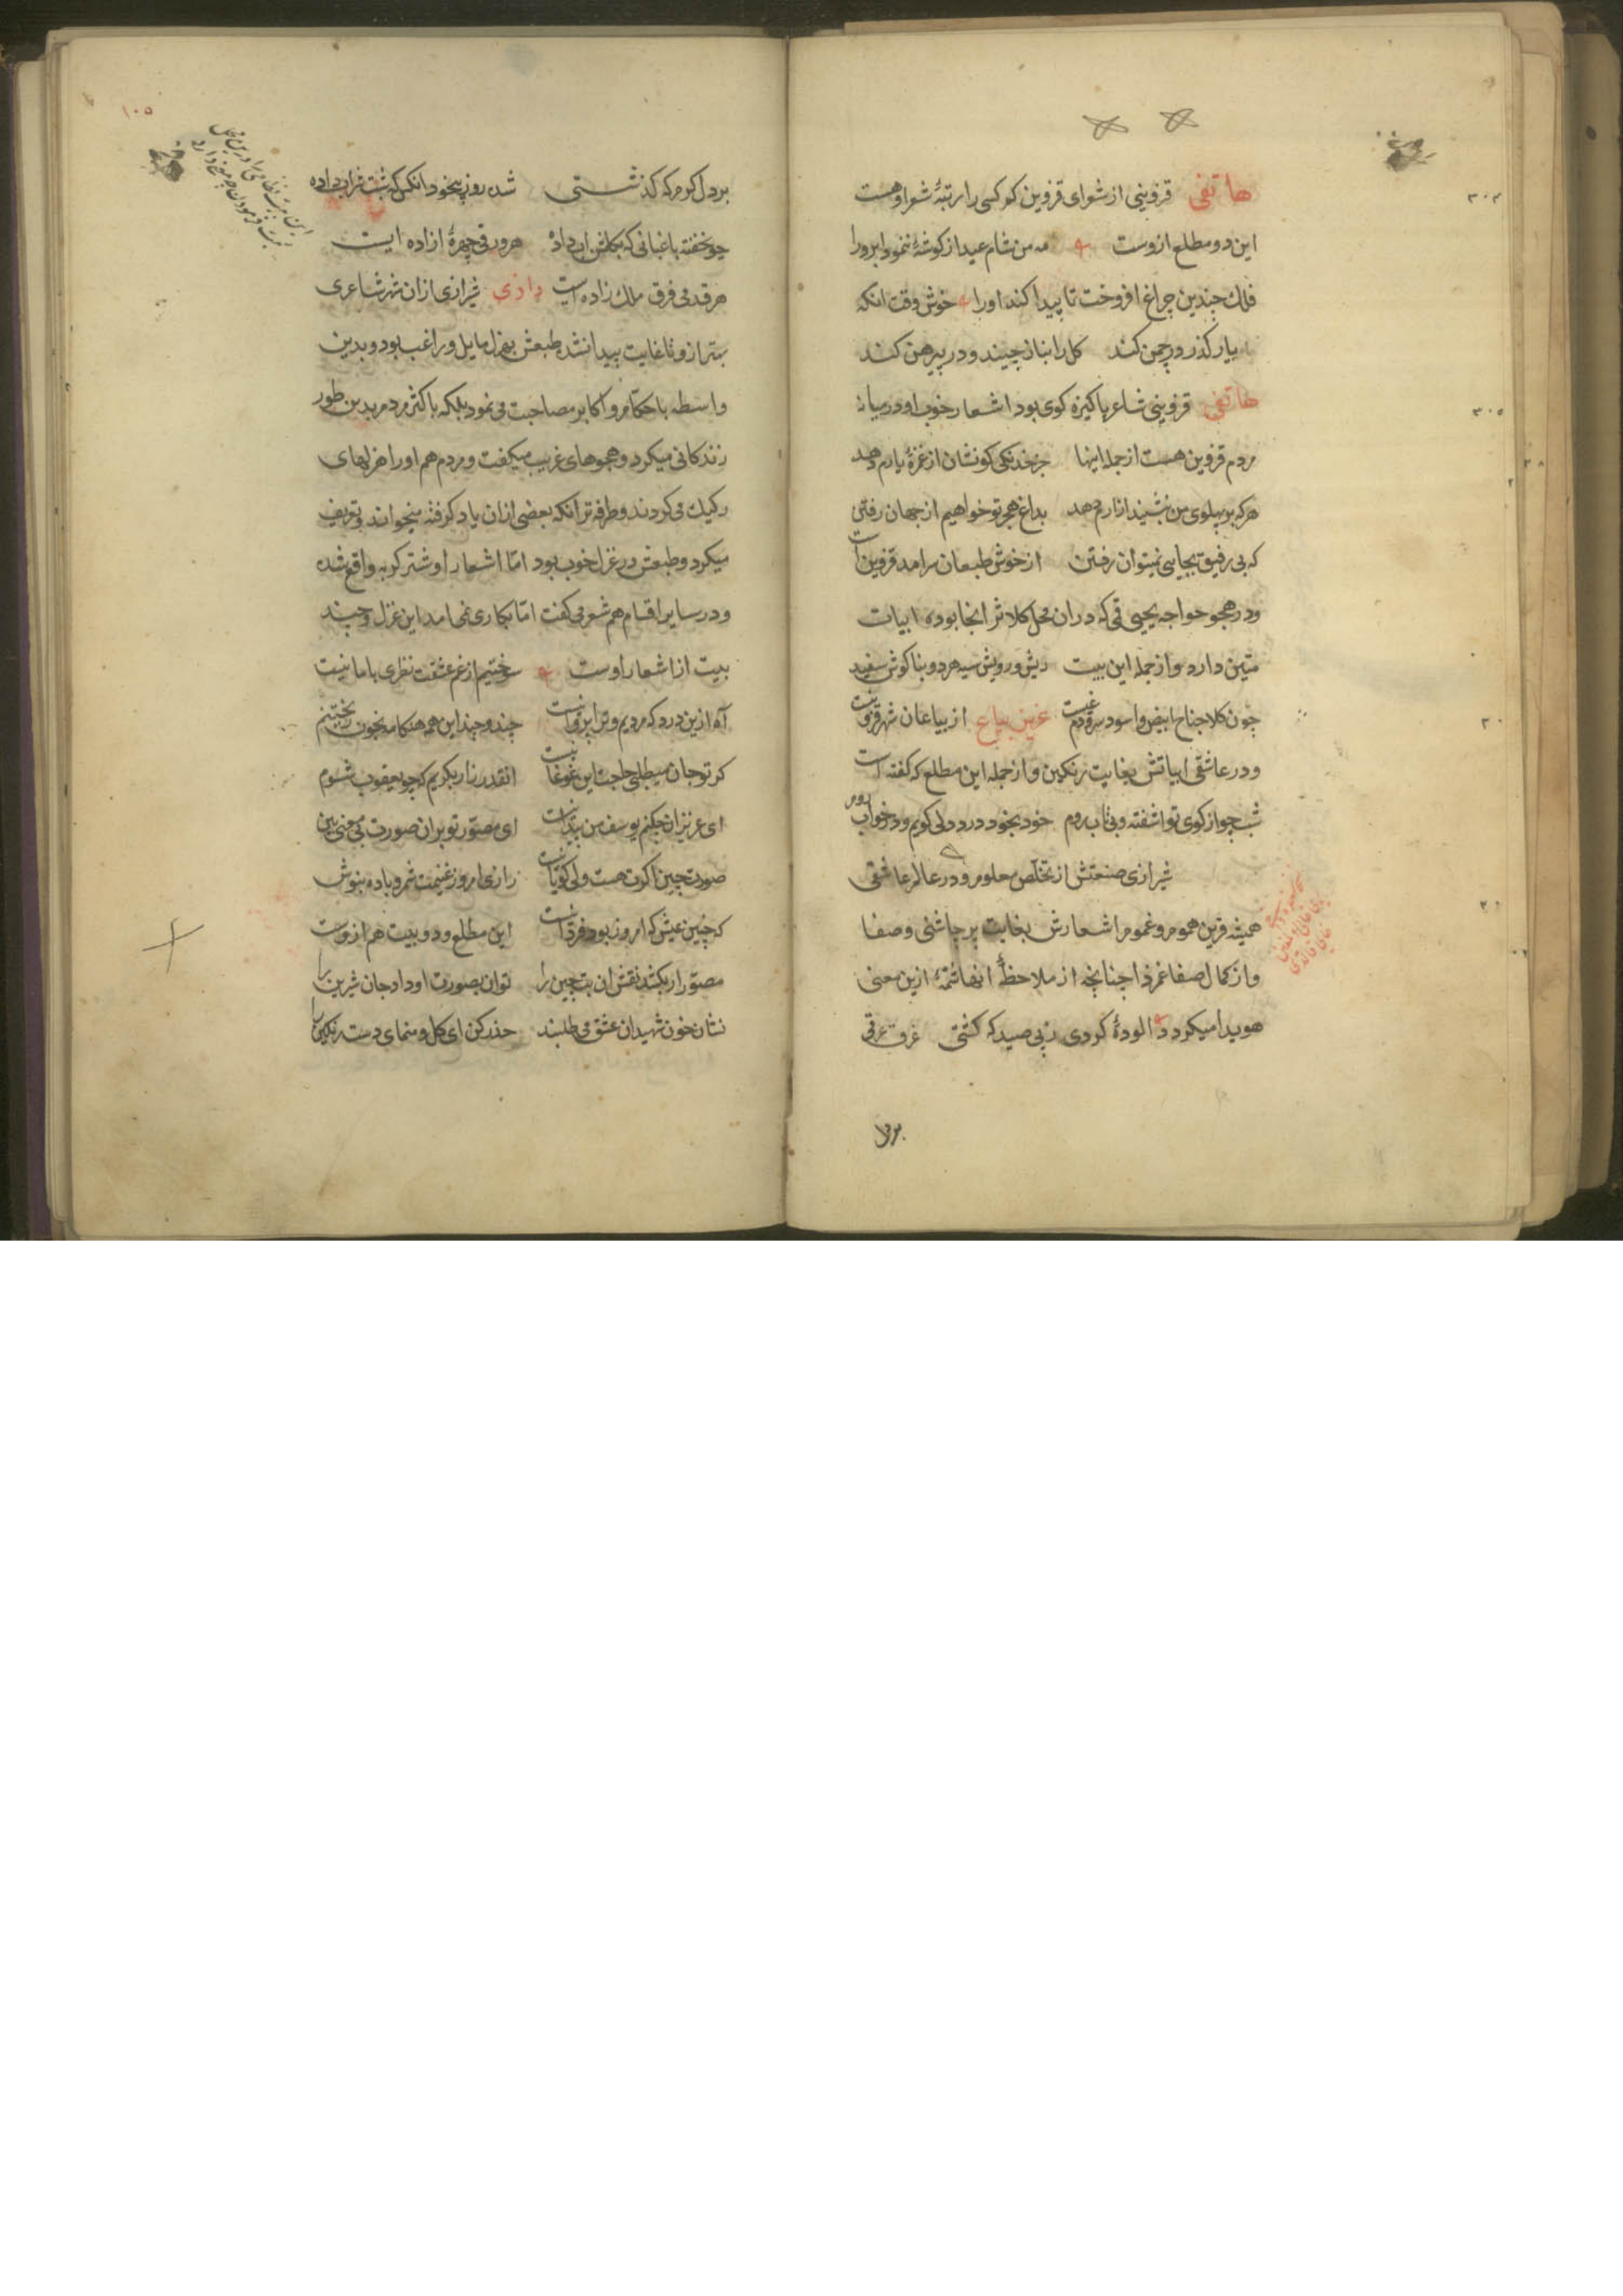 هاتفی قزوینی از شعرای قزوین که کسی را رتبهٔ شعر او هست
این دو مطلع ازوست مه من شام عید از گوشهٔ ننمود ابرو را
فلک چندین چراغ افروخت تا پیدا کند او را خوش وقت انکه
یار کذر در چمن کند کل را بناز چیند و در پیرهن کند
هاتفی قزوینی شاعر پاکیزه کوی بود اشعار خوب او در میان
مردم قزوین هست از جمله اینها جز خدنکی کو نشان از غمزهٔ یارم دهد
هر که بر پهلوی من نشیند ازارم دهد بداغ هجر تو خواهیم از جهان رفتن
که بی رفیق بجایی نمیتوان رفتن از خوش طبعان سرامد قزوین است
و در هجو خواجه یحیی که دران محل کلانتر انجا بوده ابیات
متین دارد و از جمله این بیت ریش و رویش سیه هر دو بناکوش سفید
چون کلاجناح ابیض و اسود از بیاعان شهر قزوین است
و در عاشقی ابیاتش بغایت رنکین و از جمله این مطلع که کفته است
شب چو از کوی تو اشفته و بی تاب روم خود بخود درد دل کویم و در خواب روم
شیرازی صنعتش از تخلص معلوم و در عالم عاشقی
همیشه قرین هموم و غموم اشعارش بغایت پر چاشنی و صفا
و از کمال صفا غم زدا چنانچه از ملاحظهٔ انها شمهٔ ازین معنی
هویدا میکردد الودهٔ کردی ز پی صید که کشتی غرق عرقی
بر دل
بر دل کرم که کذشتی شده روز بیخود انکس که شبت شراب داده
چو خفته باغبانی که بکلشن اب داده هر ورقی چهرهٔ ازاده ایست
هر قدمی فرق ملک زاده ایست رازی شیرازی ازان شهر شاعری
بهتر ازو تا غایت پیدا نشد طبعش بهزل مایل و راغب بود و بدین
واسطه با حکام و اکابر مصاحبت می نمود بلکه با اکثر مردم بدین طور
زندکانی میکرد و هجوهای غریب میکفت و مردم هم او را هزلهای
رکیک می کردند و طرفه تر انکه بعضی ازان یاد کرفته میخواند و تعریف
میکرد و طبعش در غزل خوب بود اما اشعار او شتر کربه واقع شده
و در سایر اقسام هم شعر می کفت اما بکاری نمی امد این غزل و چند
بیت از اشعار اوست سوختیم از غم عشقت نظری با ما نیست
آه ازین درد که مردیم و ترا پروا نیست چند و چند این همه هنکامه بخون ریختنم
کر تو جان میطلبی حاجت این غوغا نیست انقدر زار بکریم که چو یعقوب شوم
ای عزیزان چکنم یوسف من پیدا نیست ای مصور تو بران صورت بی معنی بین
صورت چین اکرت هست ولی کویا نیست رازی امروز غنیمت شمر و باده بنوش
که چنین عیش که امروز بود فردا نیست این مطلع و دو بیت هم ازوست
مصور ار بکشد نقش ان بت چین را توان بصورت او داد جان شیرین را
نشان خون شهیدان عشق می طلبند حذر کن ای کل و منمای دست رنکین را
۱۰۵